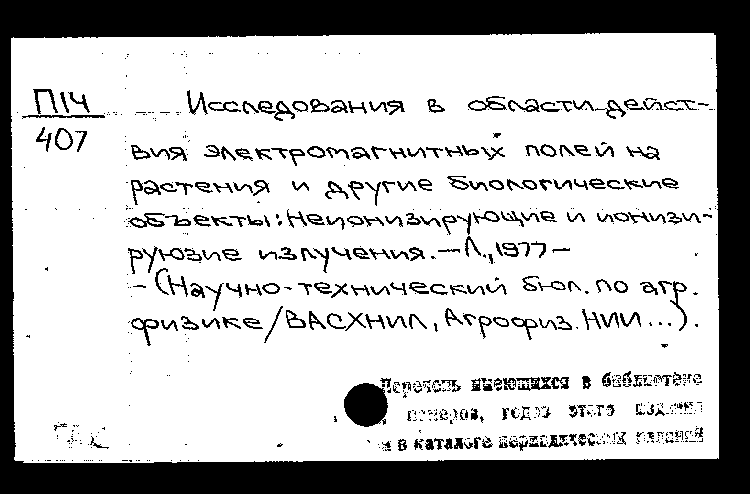 П14
407
Исследования в области дейст-
вия электромагнитных полей на
растения и другие биологические
объекты: Неионизирующие и ионизи-
рующие излучения. — Л., 1977 —
— (Научно-технический бюл. по агр.
физике/ВАСХНИЛ, Агрофиз. НИИ...).
Перечень имеющихся в библиотеке
номеров, годов этого издания
и в каталоге периодических изданий